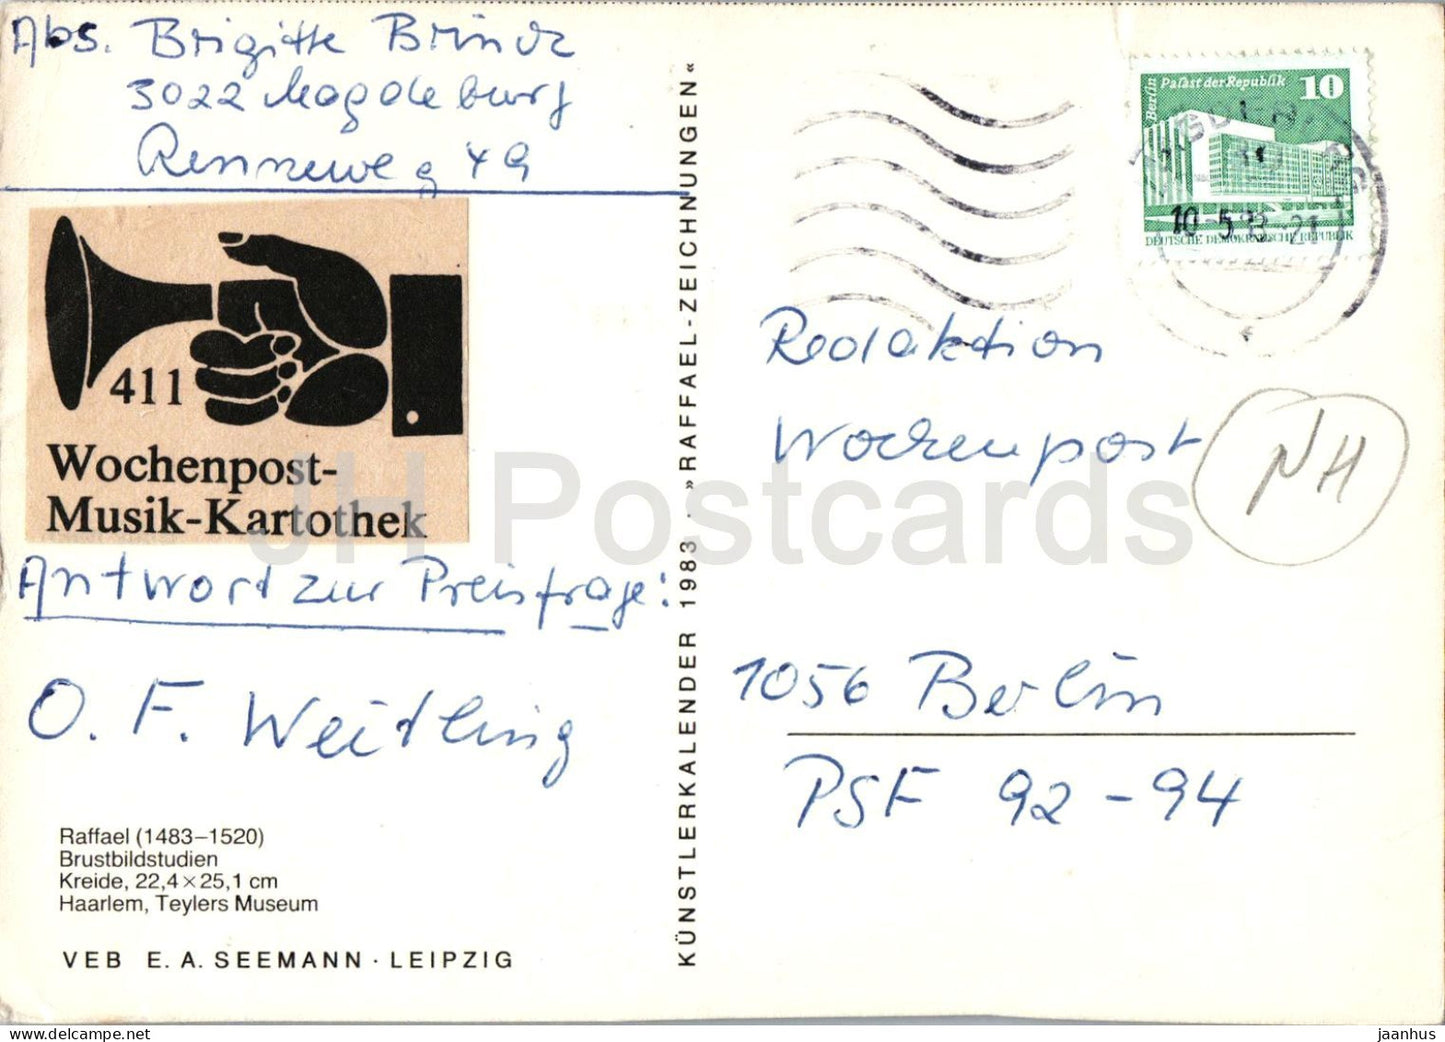 Abs. Brigitte
3022 Magdeburg
Renneweg 49
411
Wochenpost-
Musik-Kartothek
Antwort zur Preisfrage:
O. F. Weitling
Raffael (1483–1520)
Brustbildstudien
Kreide, 22,4 × 25,1 cm
Haarlem, Teylers Museum
VEB E. A. SEEMANN · LEIPZIG
KÜNSTLERKALENDER 1983 · »RAFFAEL-ZEICHNUNGEN«
Berlin Palast der Republik 10
DEUTSCHE DEMOKRATISCHE REPUBLIK
10.-5.83-21
Redaktion
Wochenpost
NH
1056 Berlin
PSF 92-94
JH Postcards
jaanhus.delcampe.net
jaanhus